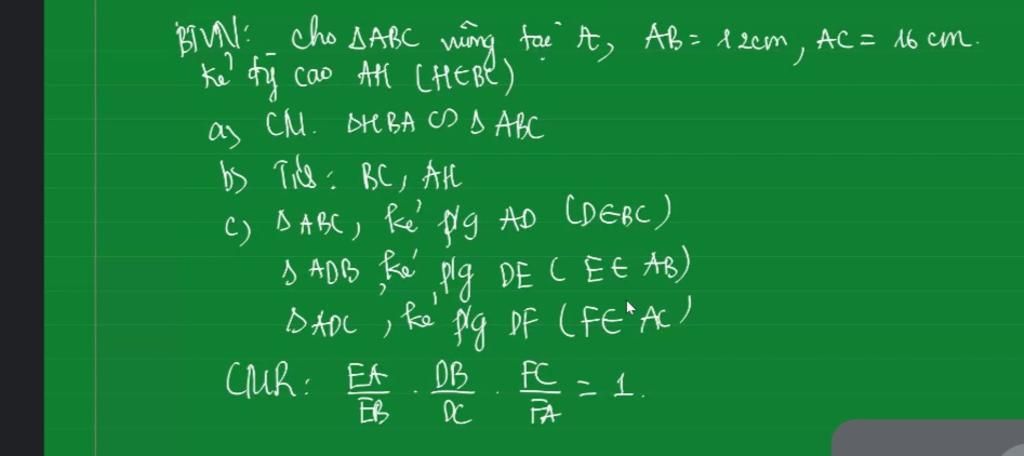 BTVN: cho ΔABC vuông tại A, AB = 12cm, AC = 16 cm.
kẻ đg cao AH (H∈BC)
a) CM. ΔHBA ∽ ΔABC
b) Tính: BC, AH
c) ΔABC, kẻ p/g AD (D∈BC)
ΔADB, kẻ p/g DE (E∈ AB)
ΔADC, kẻ p/g DF (F∈ AC)
CMR: EA/EB . DB/DC . FC/FA = 1.